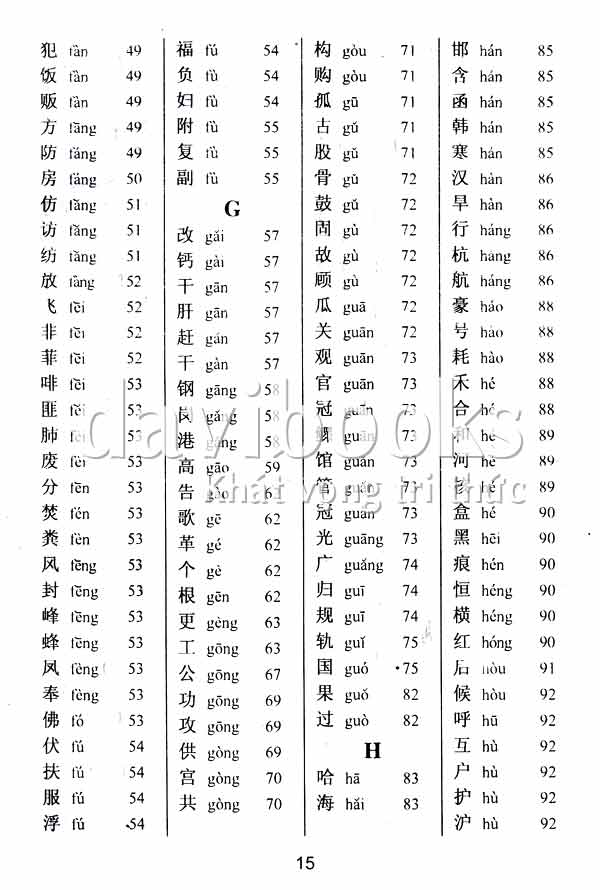 犯 fàn 49
饭 fàn 49
贩 fàn 49
方 fāng 49
防 fáng 49
房 fáng 50
仿 fǎng 51
访 fǎng 51
纺 fǎng 51
放 fàng 52
飞 fēi 52
非 fēi 52
菲 fēi 52
啡 fēi 53
匪 fěi 53
肺 fèi 53
废 fèi 53
分 fēn 53
焚 fén 53
粪 fèn 53
风 fēng 53
封 fēng 53
峰 fēng 53
蜂 fēng 53
凤 fèng 53
奉 fèng 53
佛 fó 53
伏 fú 54
扶 fú 54
服 fú 54
浮 fú 54
福 fú 54
负 fù 54
妇 fù 54
附 fù 55
复 fù 55
副 fù 55
G
改 gǎi 57
钙 gài 57
干 gān 57
肝 gān 57
赶 gǎn 57
干 gàn 57
钢 gāng 58
岗 gǎng 58
港 gǎng 58
高 gāo 59
告 gào 61
歌 gē 62
革 gé 62
个 gè 62
根 gēn 62
更 gèng 63
工 gōng 63
公 gōng 67
功 gōng 69
攻 gōng 69
供 gòng 69
宫 gòng 70
共 gòng 70
构 gòu 71
购 gòu 71
孤 gū 71
古 gǔ 71
股 gǔ 71
骨 gǔ 72
鼓 gǔ 72
固 gù 72
故 gù 72
顾 gù 72
瓜 guā 72
关 guān 72
观 guān 73
官 guān 73
冠 guān 73
鳏 guān 73
馆 guǎn 73
管 guǎn 73
冠 guàn 73
光 guāng 73
广 guǎng 74
归 guī 74
规 guī 74
轨 guǐ 75
国 guó 75
果 guǒ 82
过 guò 82
H
哈 hā 83
海 hǎi 83
邯 hán 85
含 hán 85
函 hán 85
韩 hán 85
寒 hán 85
汉 hàn 86
旱 hàn 86
行 háng 86
杭 háng 86
航 háng 86
豪 háo 88
号 hào 88
耗 hào 88
禾 hé 88
合 hé 88
和 hé 89
河 hé 89
hé 89
盒 hé 90
黑 hēi 90
痕 hén 90
恒 héng 90
横 héng 90
红 hóng 90
后 hòu 91
候 hòu 92
呼 hū 92
互 hù 92
户 hù 92
护 hù 92
沪 hù 92
davibooks
Khát vọng tri thức
15